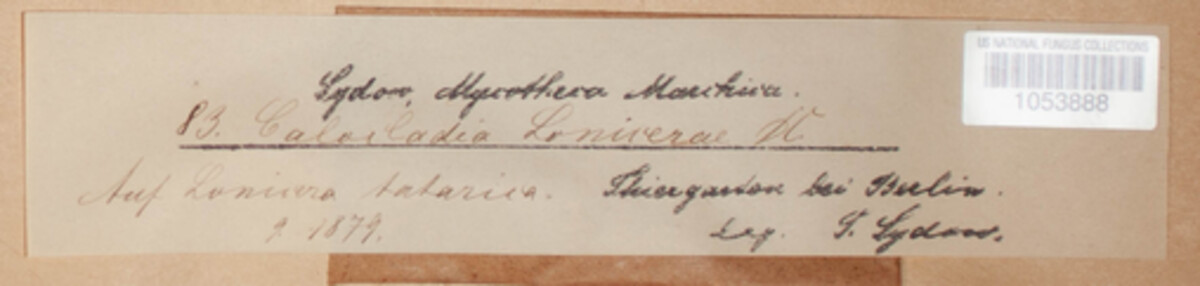 Sydow, Mycotheca Marchica.
83. Calocladia Lonicerae
Auf Lonicera tatarica. Thiergarten bei Berlin.
9. 1879. Leg. P. Sydow.
US NATIONAL FUNGUS COLLECTIONS
1053888